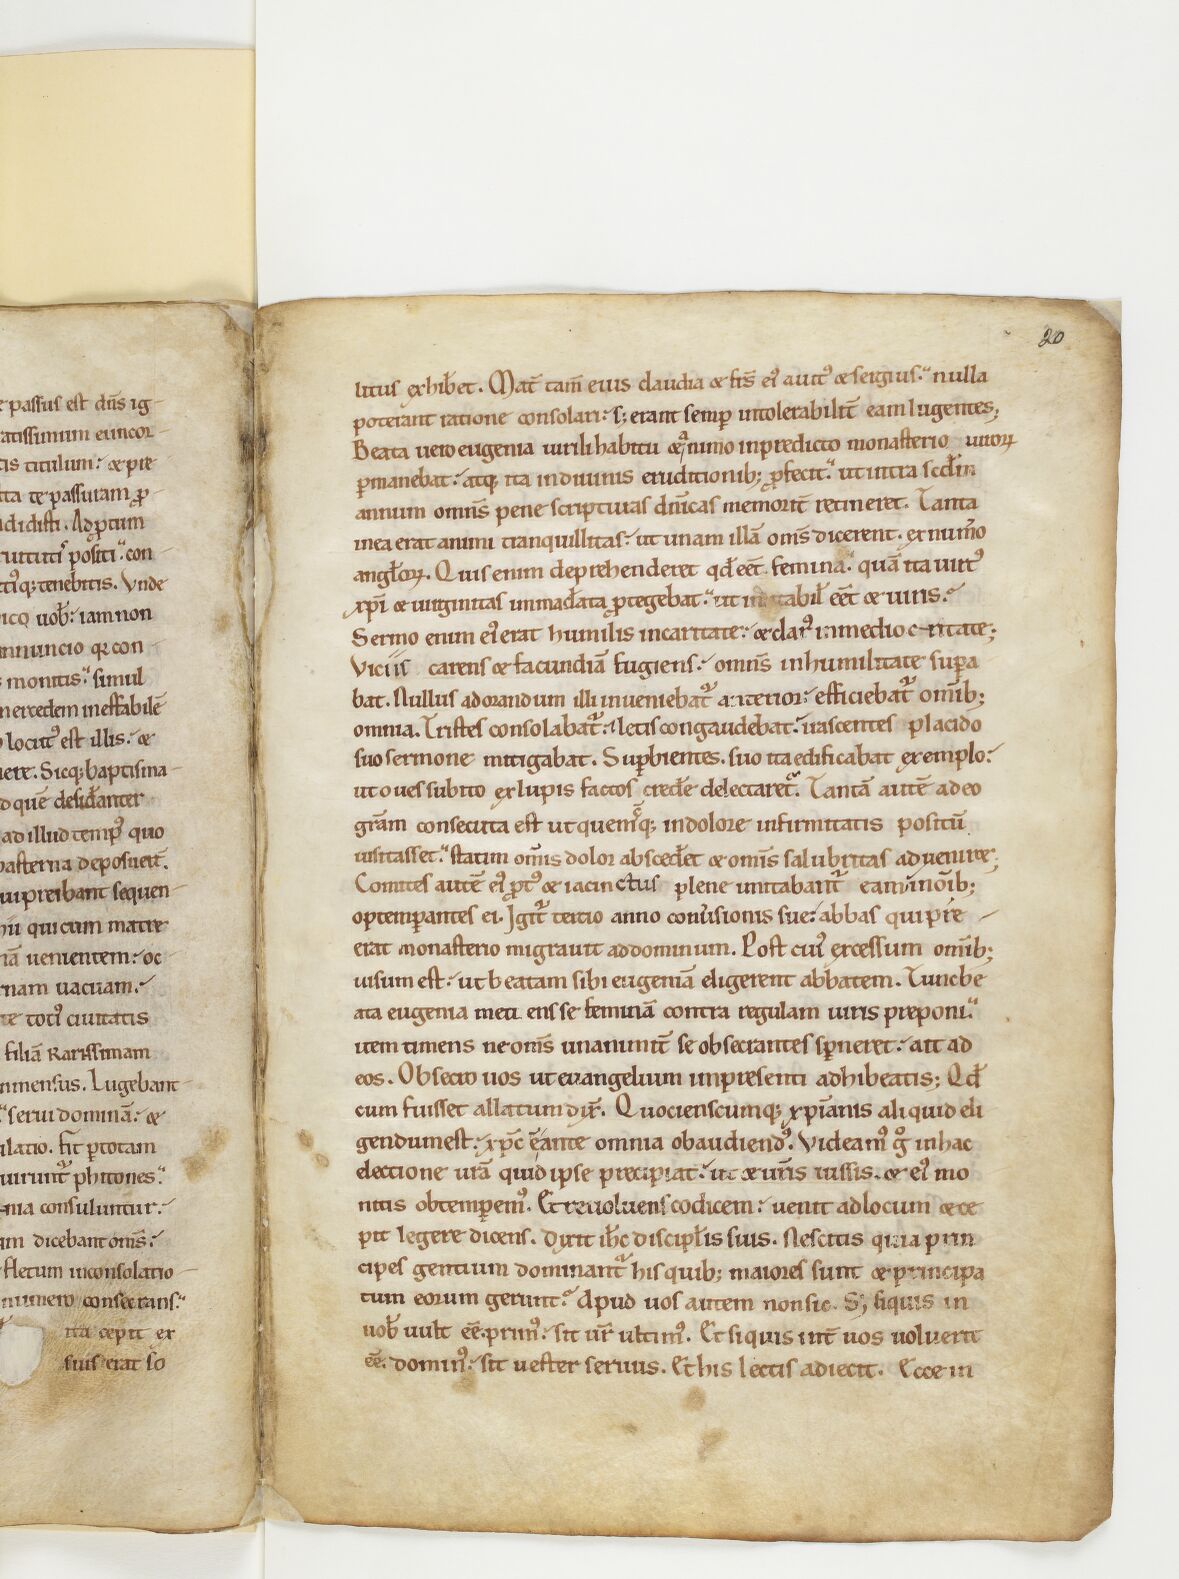 e passus est dñs ig-
atissimum eu incor-
tis titulum: & pre
ta te passuram ꝓ-
didisti. Adꝑtum
positi. con
tenebris. Vnde
uob̄. iam non
annuncio qr con
monitis. simul
mercedem ineffabilē
locut᷒ est illis. &
Sicq; baptisma-
d quē desid̄anter
ad illud temp᷒ quo
basterna deposuert̄.
preibant sequen-
qui cum matre
uenientem. oc
nam uacuam.
toti᷒ ciuitatis
filiā karissimam
mmensus. Lugebant
serui dominā. &
ilatio. fit ꝑ totam
phitones.
consuluntur.
dicebant om̄s.
fletum inconsolatio-
numero consecrans.
ita cepit ex
suis erat so
20
litus exhib̄et. Mat̄ tam̄ eius claudia & frs̄ ei᷒ auit᷒ & sergius. nulla
poterant ratione consolari. s; erant semꝑ intolerabilit̄ eam lugentes;
Beata uero eugenia uirili habitu & animo in predicto monasterio uiroꝝ
ꝑmanebat. atq; ita in diuinis eruditionib; ꝓfecit. ut intra scd̄m
annum omn̄s pene scripturas dn̄icas memorit̄ retineret. Tanta
inea erat animi tranquillitas. ut unam illā om̄s dicerent. ex num̄o
angl̄oꝝ. Quis enim deprehenderet qd̄ eēt femina. quā ita uirt᷒
xp̄i & uirginitas immad̄ata ꝓtegebat. ut eēt & uiris.
Sermo enim ei᷒ erat humilis in caritate. & clar᷒ in mediocritate;
Viciis carens & facundiā fugiens. omn̄s in humilitate supera
bat. Nullus ad orandum illi inueniebat᷑ anterior. efficiebat᷑ omib̄;
omnia. Tristes consolabat᷑. letis congaudebat. irascentes placido
suo sermone mitigabat. Suꝑbientes. suo ita edificabat exemplo.
ut oues subito ex lupis factos cred̄e delectaret᷑. Tantā autē adeo
gr̄am consecuta est ut quemcq; in dolore infirmitatis positū
uisitasset. statim om̄is dolor absced̄et & om̄is salubritas adueniret;
Comites autē ei᷒ ꝓt᷒ & iacinctus plene imitabant᷑ eam in om̄ib;
optemperantes ei. Igit᷑ tertio anno conu̅sionis sue. abbas qui pre-
erat monasterio migrauit ad dominum. Post cui᷒ excessum om̄ib;
uisum est. ut beatam sibi eugeniā eligerent abbatem. Tunc be
ata eugenia metuens se feminā contra regulam uiris preponi.
item timens ne om̄s unanimit̄ se obsecrantes sꝑneret. ait ad
eos. Obsecro uos ut euangelium inpresenti adhibeatis; Qd̄
cum fuisset allatum dix̄. Quocienscumq; xp̄ianis aliquid eli
gendum est. xp̄c ante omnia obaudiend᷒. Videam᷒ g̊ in hac
electione ur̄a quid ipse precipiat. ut & ur̄is iussis. & ei᷒ mo
nitis obtemꝑem᷒. Et reuoluens codicem. uenit ad locum & ce
pit legere dicens. Dixit ih̄c discipl̄is suis. Nescitis quia prin
cipes gentium dominant᷑ his quib; maiores sunt & principa
tum eorum gerunt. Apud uos autem non sic. S; siquis in
uob̄ uult eē prim᷒. sit ur̄ ultim᷒. Et si quis int̄ uos uoluerit
eē. domin᷒. sit uester seruus. Et his lectis adiecit. Ecce in